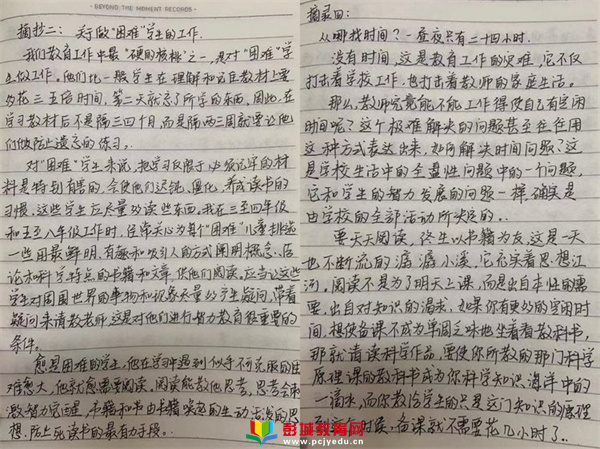 BEYOND THE MOMENT RECORDS
摘抄二：关于做“困难”学生的工作.
我们教育工作中最“硬的核桃”之一，是对“困难”学
生做工作。他们比一般学生在理解和记住教材上要
多花三五倍时间，第二天就忘了所学的东西。因此，在
学习教材后不是隔三四个月，而是隔两三周就要让他
们做防止遗忘的练习。
对“困难”学生来说，把学习只限于必须记牢的材
料是特别有害的，会使他们迟钝、僵化，养成读书的
习惯，这些学生应尽量多读些东西。我在三至四年级
和五至八年级工作时，经常关心为每个“困难”儿童挑选
一些用最鲜明、有趣和吸引人的方式阐明概念、结
论和科学特点的书籍和文章，供他们阅读，应当让这些
学生对周围世界的事物和现象尽量多产生疑问，带着
疑问来请教老师，这是对他们进行智力教育很重要的
条件。
愈是困难的学生，他在学习中遇到似乎不可克服的困
难愈大，他就愈需要阅读，阅读能教他思考，思考会刺
激智力觉醒，书籍和由书籍唤起的生动活泼的思
想，防止死读书的最有力手段。
摘录四：
从哪找时间？一昼夜只有二十四小时.
没有时间，这是教育工作的灾难，它不仅
打击着学校工作，也打击着教师的家庭生活。
那么教师究竟能不能工作得使自己有空闲
时间呢？这个极难解决的问题甚至往往用
这种方式表达出来，如何解决时间问题？这
是学校生活中的全盘性问题中的一个问题，
它和学生的智力发展的问题一样，确实是
由学校的全部活动所决定的。
要天天阅读，终生以书籍为友，这是一天
也不断流的潺潺小溪，它充实着思想江
河，阅读不是为了明天上课，而是出自本性的需
要，出自对知识的渴求，如果你有更多的空闲时
间，想使备课不成为单调乏味地坐着看教科书，
那就请读科学作品，要使你所教的那门科学
原理课的教科书成为你科学知识海洋中的
一滴水，而你教给学生的只是这门知识的原理
时候，备课就不需要花几小时了。
彭城教育网
www.pcjyedu.cn